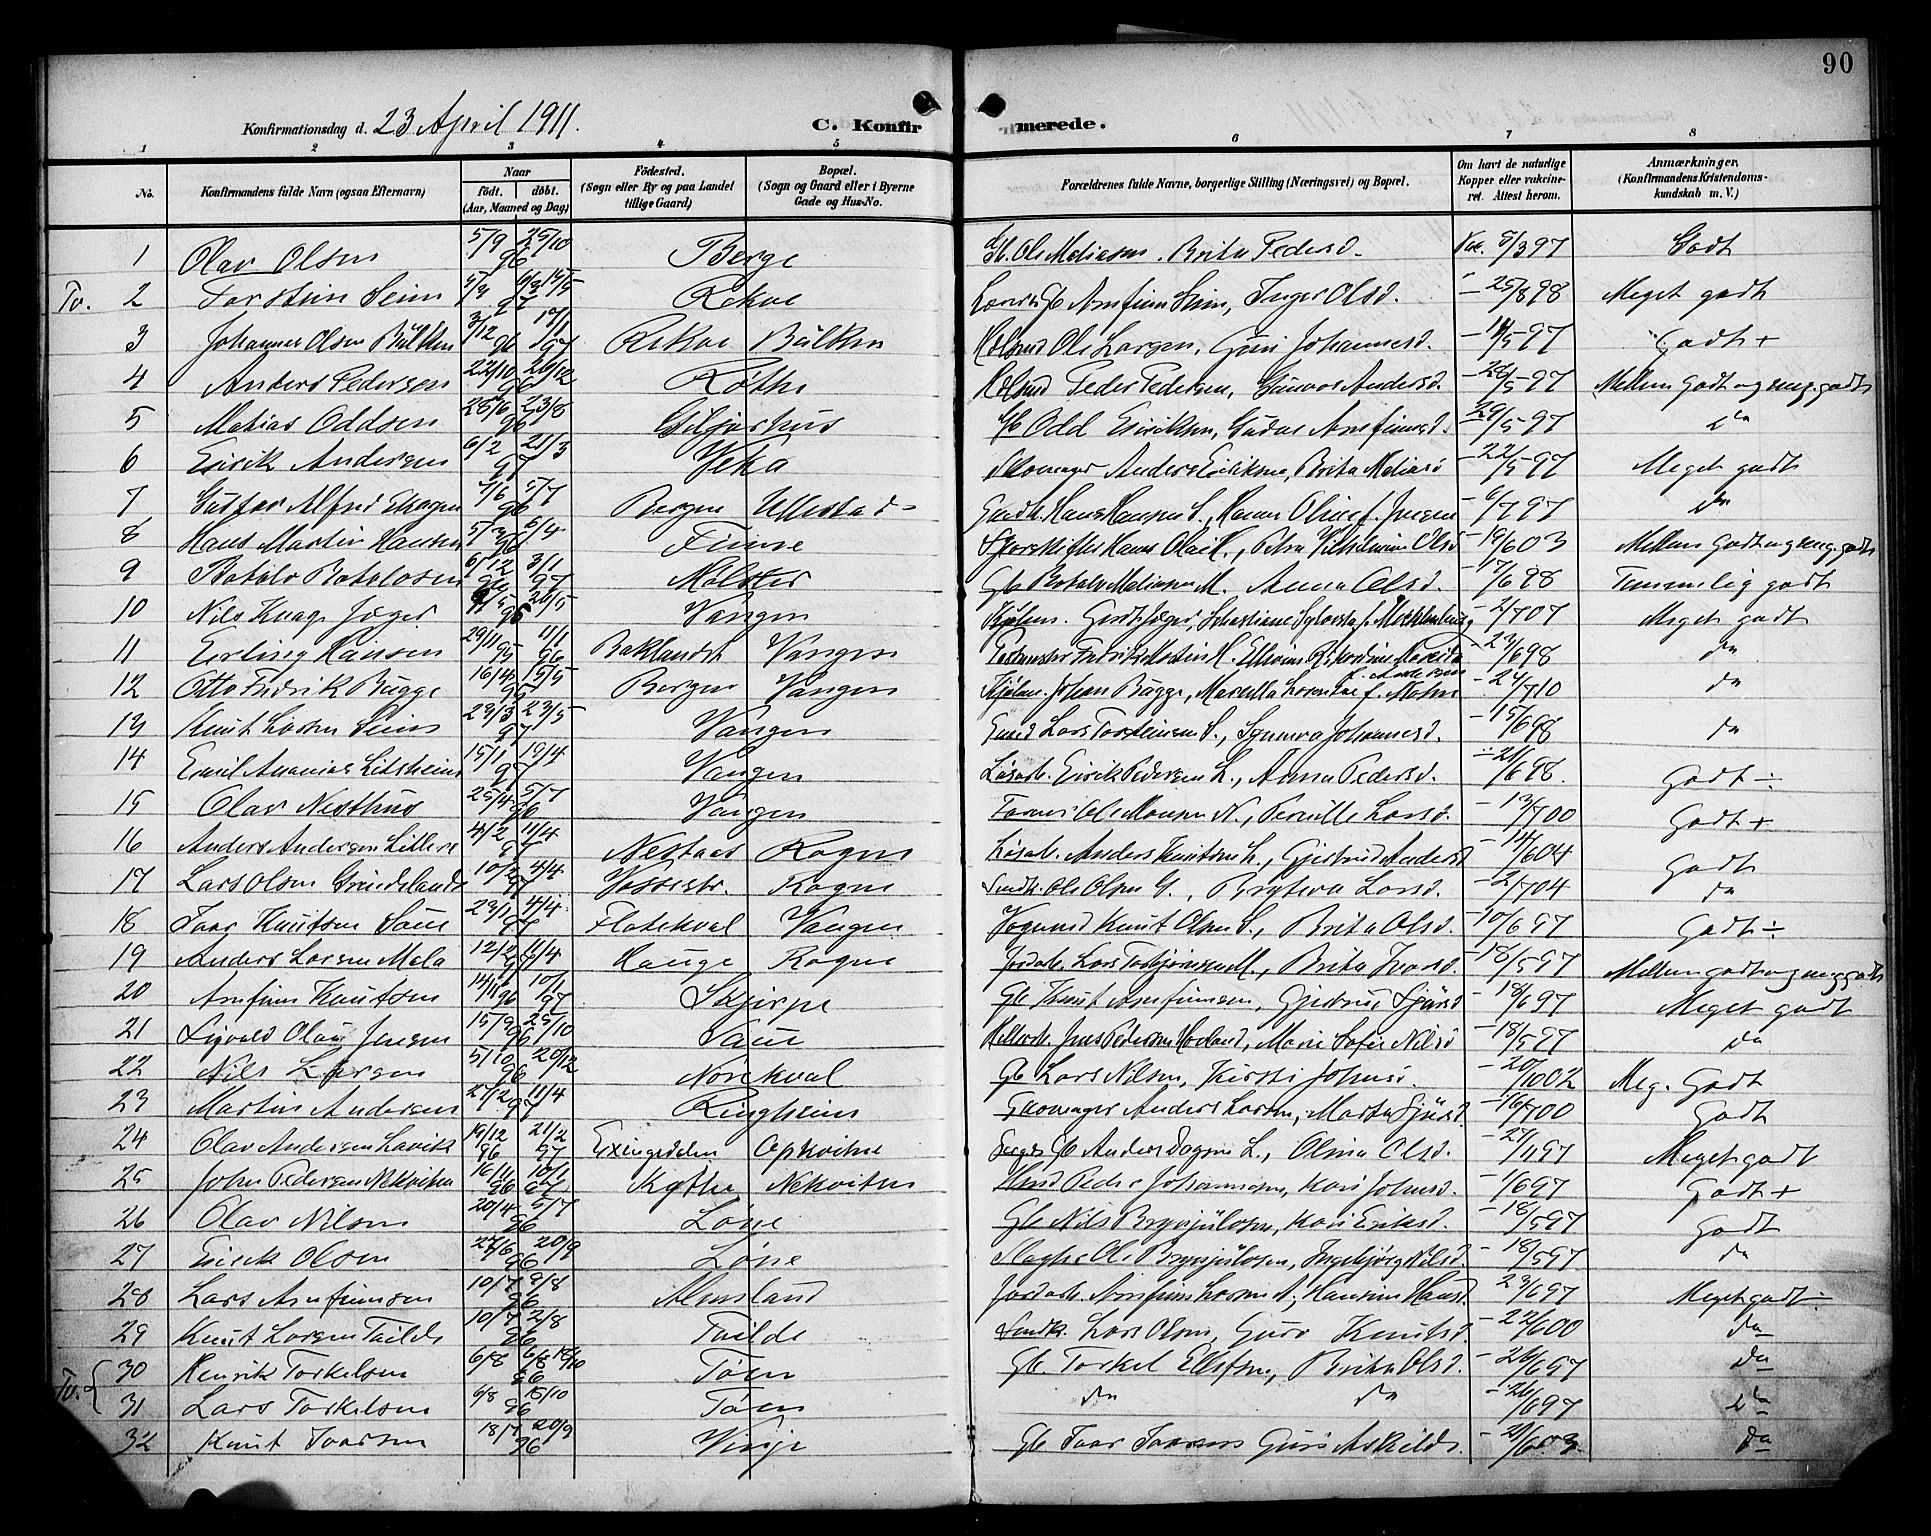 90
Konfirmationsdag d. 23 April 1911. C. Konfir merede.
1 2 3 4 5 6 7 8
No. Konfirmandens fulde Navn (ogsaa Efternavn) Naar født. døbt. (Aar, Maaned og Dag) Födested. (Sogn eller By og paa Landet tillige Gaard) Bopæl. (Sogn og Gaard eller i Byerne Gade og Hus-No. Forældrenes fulde Navne, borgerlige Stilling (Næringsvei) og Bopæl. Om havt de naturlige Kopper eller vakcineret. Attest herom. Anmærkninger. (Konfirmandens Kristendomskundskab m. V.)
1 Olav Olsen 5/9 25/10 96 Berge Gb. Ole Matiasen. Brita Pedersd. Vac. 8/3 97 Godt
Tv. 2 Torstein Seim 97 Rekve Gb Arnfinn Seim, Inger Olsd. - 25/8 98 Meget godt
3 Johannes Olsen Bülken 3/12 96 17/1 97 Rekve Bülken Ole Larsen, Guri Johannesd. - 14/5 97 Godt +
4 Anders Pedersen 22/10 20/12 96 Røthe Peder Pedersen, Gunvor Andersd. - 22/5 97 Mellem godt og meg. godt
5 Matias Oddsen 28/6 23/8 96 Giljarhus Gb Odd Eiriksen, Arnfinnsd. - 29/5 97 do
6 Eirik Andersen 6/2 21/3 97 Skomager Anders Eiriksen, Brita Matiasd - 22/5 97 Meget godt
7 Gustav Alfred 7/6 5/7 96 Bergen Ullestad - 6/7 97 do
8 Hans Martin Hansen 5/3 6/4 96 Finse - 19/6 03 Mellem godt og meg. godt
9 Botolv Botolvsen 6/12 96 3/1 97 Mølster Gb Botolv Matiasen M. Anna Olsd. - 17/6 98 Temmelig godt
10 Nils Knage Jæger 20/5 96 Vangen Kjøbm. Gerdt Jæger, f. Mecklenburg - 2/7 07 Meget godt
11 Erling Hansen 29/11 95 11/1 96 Baklandet Vangen - 23/6 98 do
12 Otto Fredrik Bugge 16/4 15/5 95 Bergen Vangen Kjøbm. Johan Bugge, f. Mohn - 24/7 10 do
13 Knut Larsen Seim 29/3 23/5 97 Vangen Lars Torsteinsen S., Synneva Johannesd. - 15/6 98 do
14 Emil Ananias Litsheim 15/1 19/4 97 Vangen Løsarb. Eirik Pedersen L., Anna Pedersd. - 21/6 98. Godt ÷
15 Olav Nesthus 25/4 5/7 96 Vangen Ole Monsen N., Pernille Larsd. - 13/7 00 Godt +
16 Anders Andersen Lillere 4/2 11/4 97 Nestaas Rogne Løsarb. Anders Knutsen L., Gjertrud Andersd - 14/6 04 Godt
17 Lars Olsen 10/2 4/4 97 Vossestr. Rogne Ole Olsen G., Bryteva Larsd. - 2/7 04 do
18 Ivar Knutsen Saue 23/1 4/4 97 Flatekval Vangen Knut Olsen S., Brita Olsd. - 10/6 97 Godt ÷
19 Anders Larsen Mela 12/2 11/4 97 Hauge Rogne Jordarb. Lars Torbjørnsen M., Brita Ivarsd. - 18/5 97 Mellem godt og meg godt
20 Arnfinn Knutsen 14/11 96 10/1 97 Skjerpe Gb Knut Arnfinnsen, Gjertrud Sjursd - 18/6 97 Meget godt
21 Sigvald Olai Jensen 15/9 25/10 96 Saue Jens Pedersen Hovland, Marie Sofie Nilsd - 18/5 97 do
22 Nils Larsen 5/10 20/12 96 Norekval Gb Lars Nilsen, Kirsti Johnsd. - 20/10 02 Meg. Godt
23 Martin Andersen 27/2 11/4 97 Ringheim Skomager Anders Larsen, Marta Sjursd. - 16/7 00 Godt
24 Olav Andersen Lavik 19/12 96 21/2 97 Exingedalen Opkvitne Gb Anders Dagsen L., Olina Olsd. - 27/11 97 Meget godt
25 John Pedersen Nekvitne 16/11 96 10/1 97 Kythe Nekvitne Peder Johannesen, Kari Johnsd. - 1/6 97 Godt +
26 Olav Nilsen 20/4 5/7 96 Løne Gb Nils Brynjulvsen, Kari Eriksd. - 18/5 97 Godt
27 Eirik Olsen 27/6 20/9 96 Løne Slagter Ole Brynjulvsen, Ingebjørg Nilsd. - 18/5 97 do
28 Lars Arnfinnsen 10/7 9/8 96 Almeland Jordarb. Arnfinn Larsen A, - 23/6 97 Meget godt ÷
29 Knut Larsen Tvilde 10/7 2/8 96 Tvilde Lars Olsen, Guro Knutsd. - 22/6 00 do
Tv. { 30 Henrik Torkelsen 6/8 6/8 18/10 96 Tøen Gb. Torkel Ellefsen, Brita Olsd. - 26/6 97 do
31 Lars Torkelsen 6/8 18/10 96 Tøen do do - 26/6 97 do
32 Knut Ivarsen 18/7 20/9 96 Vinje Gb Ivar Ivarsen Guri Askildsd. - 21/6 03. do